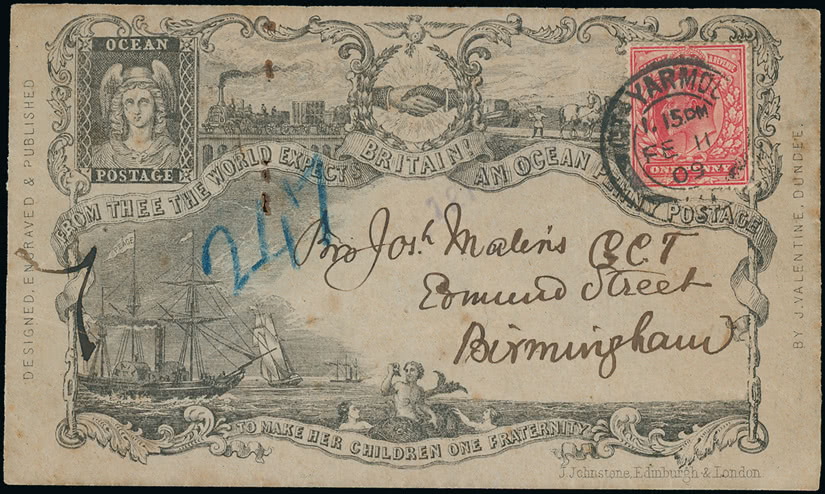 OCEAN
POSTAGE
FROM THEE THE WORLD EXPECTS
BRITAIN!
AN OCEAN PENNY POSTAGE
YARMO
7. 15 PM
FE 11
09
ONE PENNY
247
Bro Josh Malins G.C.T
Edmund Street
Birmingham
TO MAKE HER CHILDREN ONE FRATERNITY
DESIGNED, ENGRAVED & PUBLISHED
BY J. VALENTINE, DUNDEE.
J. Johnstone, Edinburgh & London